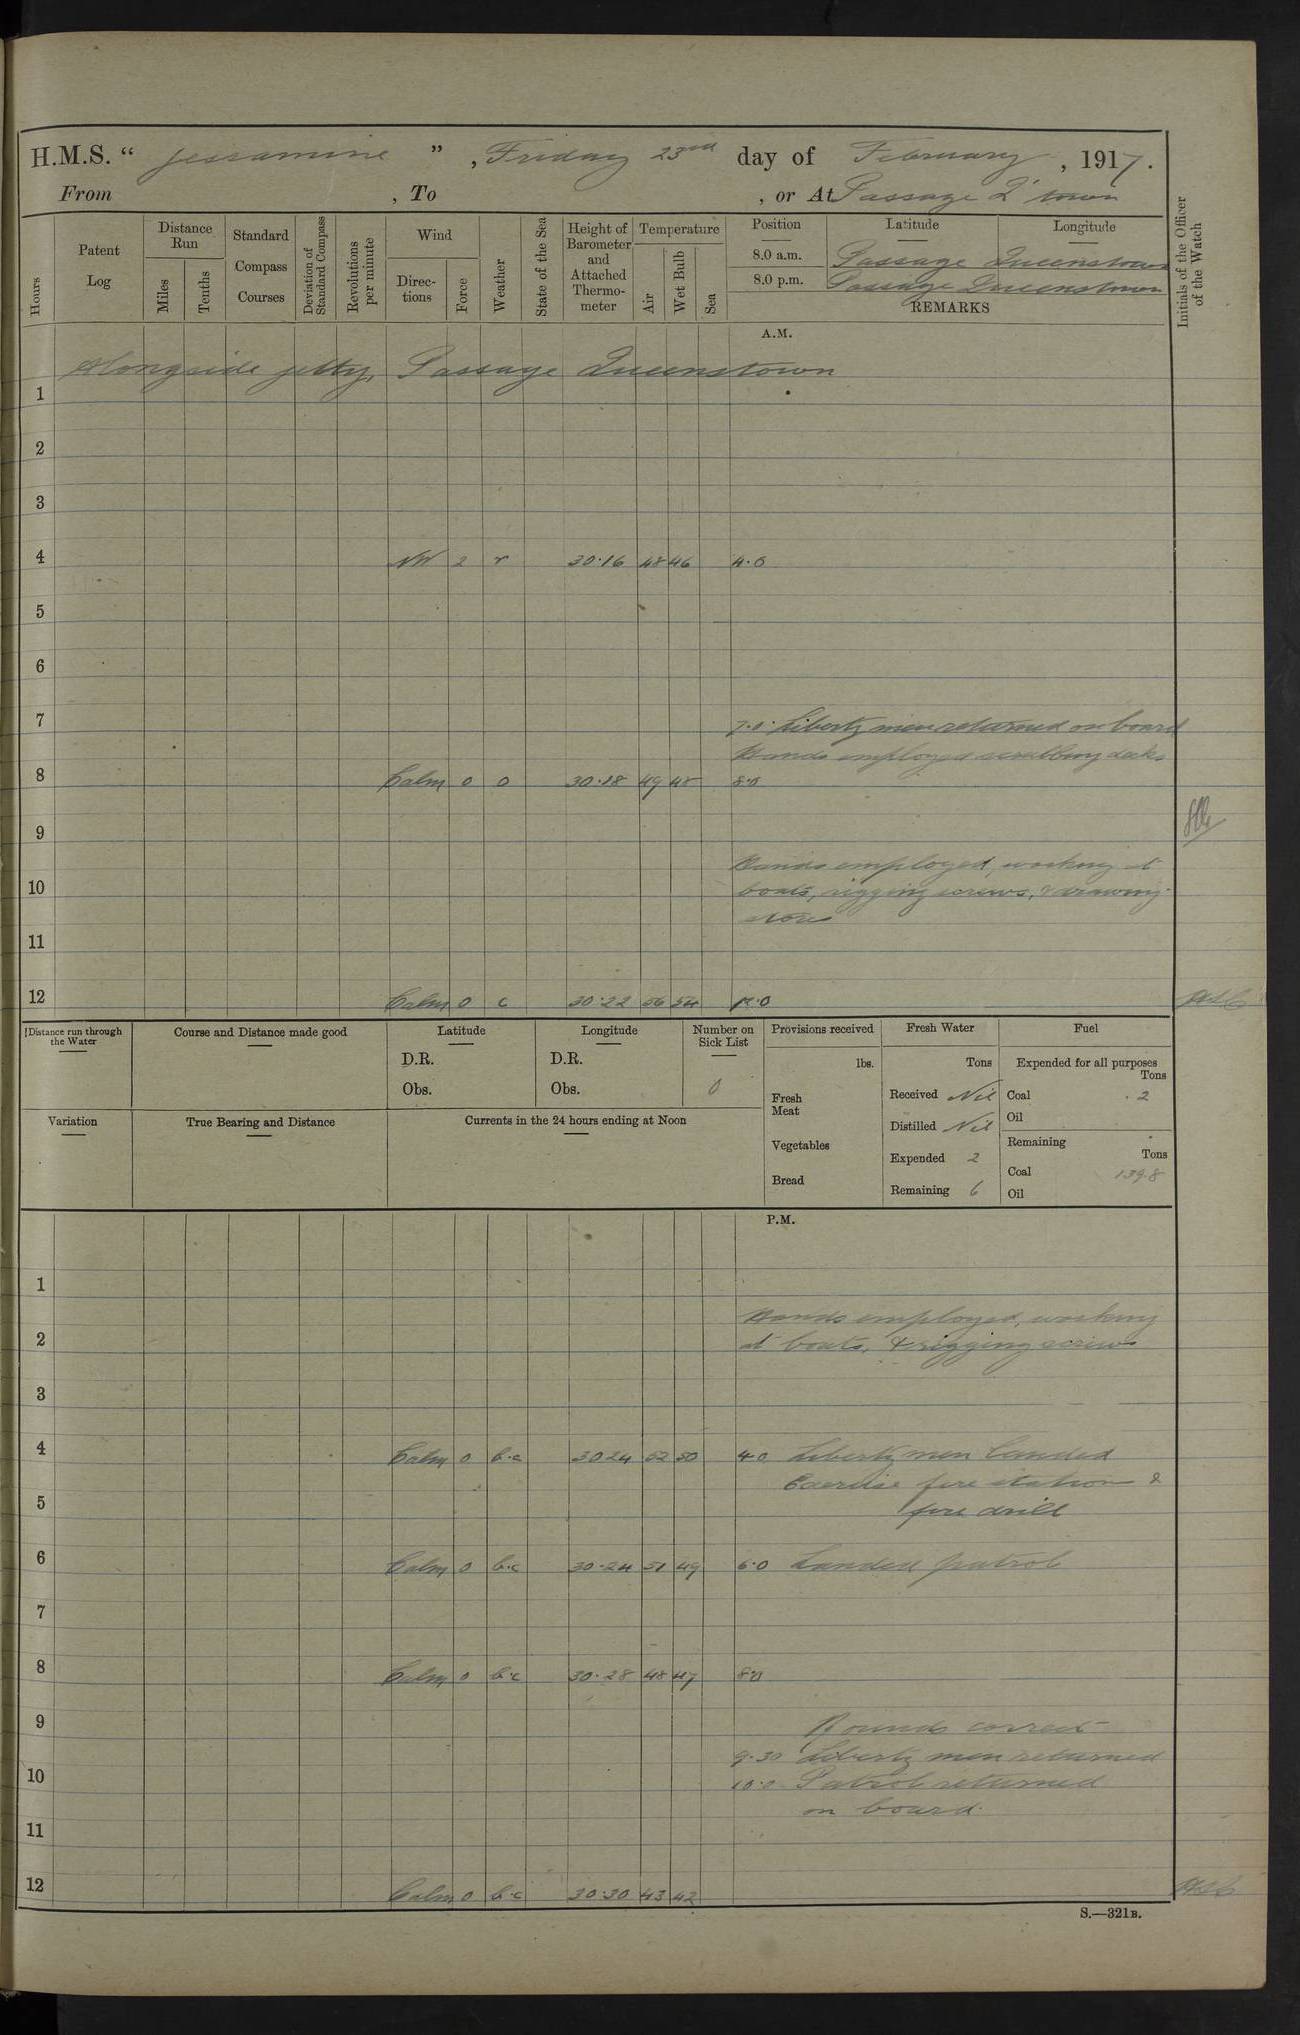 H.M.S. “ Jessamine ” , Friday 23rd day of February , 1917.
From , To , or At Passage Q'town
Hours
Patent Log
Distance Run
Miles
Tenths
Standard Compass Courses
Deviation of Standard Compass
Revolutions per minute
Wind
Directions
Force
Weather
State of the Sea
Height of Barometer and Attached Thermometer
Temperature
Air
Wet Bulb
Sea
Position Latitude Longitude
8.0 a.m. Passage Queenstown
8.0 p.m. Passage Queenstown
REMARKS
Initials of the Officer of the Watch
A.M.
Alongside jetty, Passage Queenstown
1
2
3
4 NW 2 r 30.16 48 46 4.0
5
6
7 7.0 Liberty men returned on board
Hands employed scrubbing decks
8 Calm 0 0 30.18 49 48 8.0
9
Hands employed, working at
10 boats, rigging screws, & drawing
stores
11
12 Calm 0 c 30.22 56 54 12.0
Distance run through the Water
Course and Distance made good
Latitude
D.R.
Obs.
Longitude
D.R.
Obs.
Number on Sick List
0
Provisions received
lbs.
Fresh Meat
Vegetables
Bread
Fresh Water
Tons
Received Nil
Distilled Nil
Expended 2
Remaining 6
Fuel
Expended for all purposes
Tons
Coal .2
Oil
Remaining
Tons
Coal 139.8
Oil
Variation
True Bearing and Distance
Currents in the 24 hours ending at Noon
P.M.
1
Hands employed, working
2 at boats, & rigging screws
3
4 Calm 0 b.c 30.24 52 50 4.0 Liberty men landed
Exercise fire stations &
5 fire drill
6 Calm 0 b.c 30.24 51 49 6.0 Landed patrol
7
8 Calm 0 b.c 30.28 48 47 8.0
9 Rounds correct
9.30 Liberty men returned
10 10.0 Patrol returned
on board.
11
12 Calm 0 b.c 30.30 43 42
S.—321B.